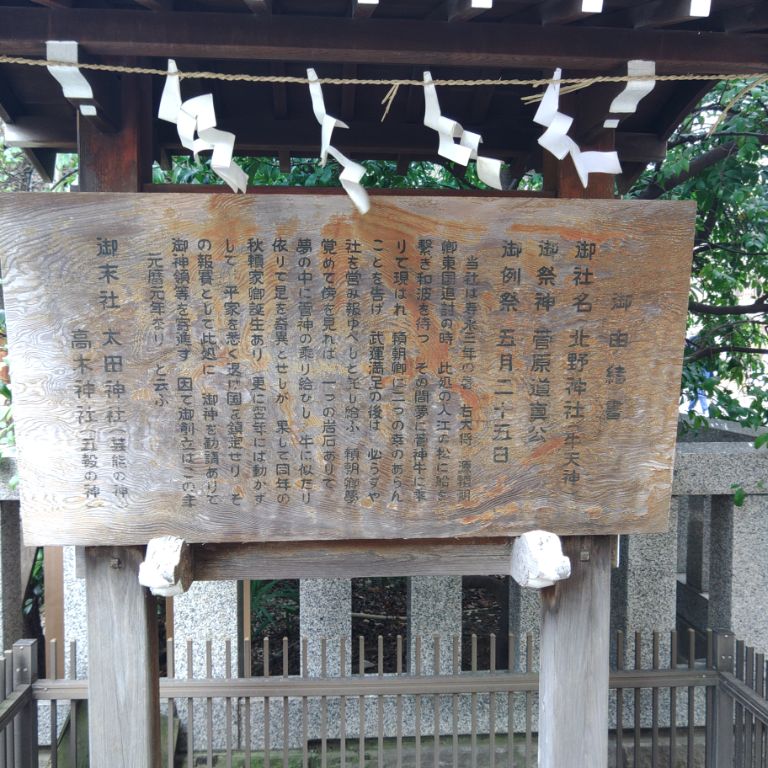 御由緒書
御社名 北野神社（牛天神）
御祭神 菅原道真公
御例祭 五月二十五日
当社は寿永三年の春 右大将 源頼朝
卿東国追討の時 此処の入江の松に船を
繋ぎ和波を待つ その間夢に菅神牛に乗
りて現はれ 頼朝卿に二つの幸のあらん
ことを告げ 武運満足の後は 必らずや
社を営み報ゆべしと宣し給ふ 頼朝卿夢
覚めて傍を見れば 一つの岩石ありて
夢の中に菅神の乗り給ひし 牛に似たり
依りて是を奇異とせしが 果して同年の
秋頼家卿誕生あり 更に翌年には動かず
して 平家を悉く退け国を鎮定せり そ
の報賽として此処に 御神を勧請ありて
御神領等を寄進す 因て御創立はこの年
元暦元年なり と云ふ
御末社 太田神社（芸能の神）
高木神社（五穀の神）